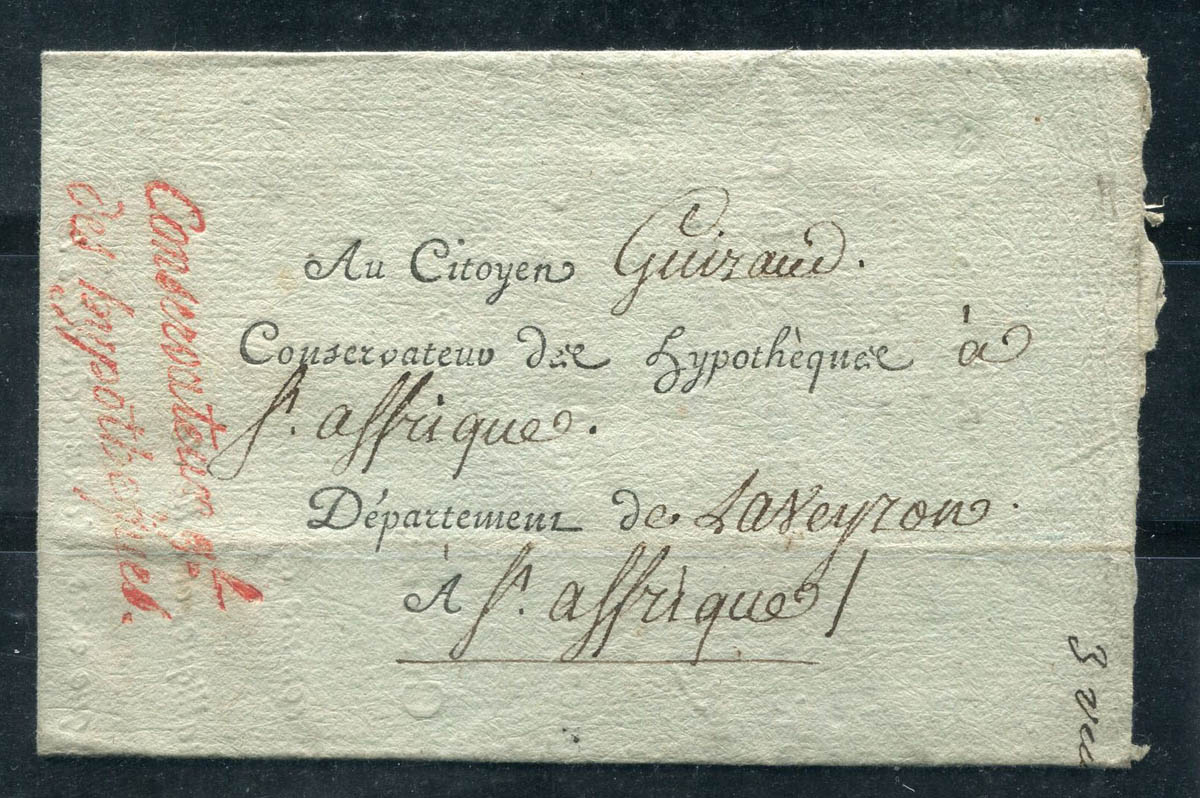 Au Citoyen Guiraud.
Conservateur des Hypothèques à
St. affrique.
Département de Laveyron.
À St. affrique /
Conservateur g.L
des hypothèques.